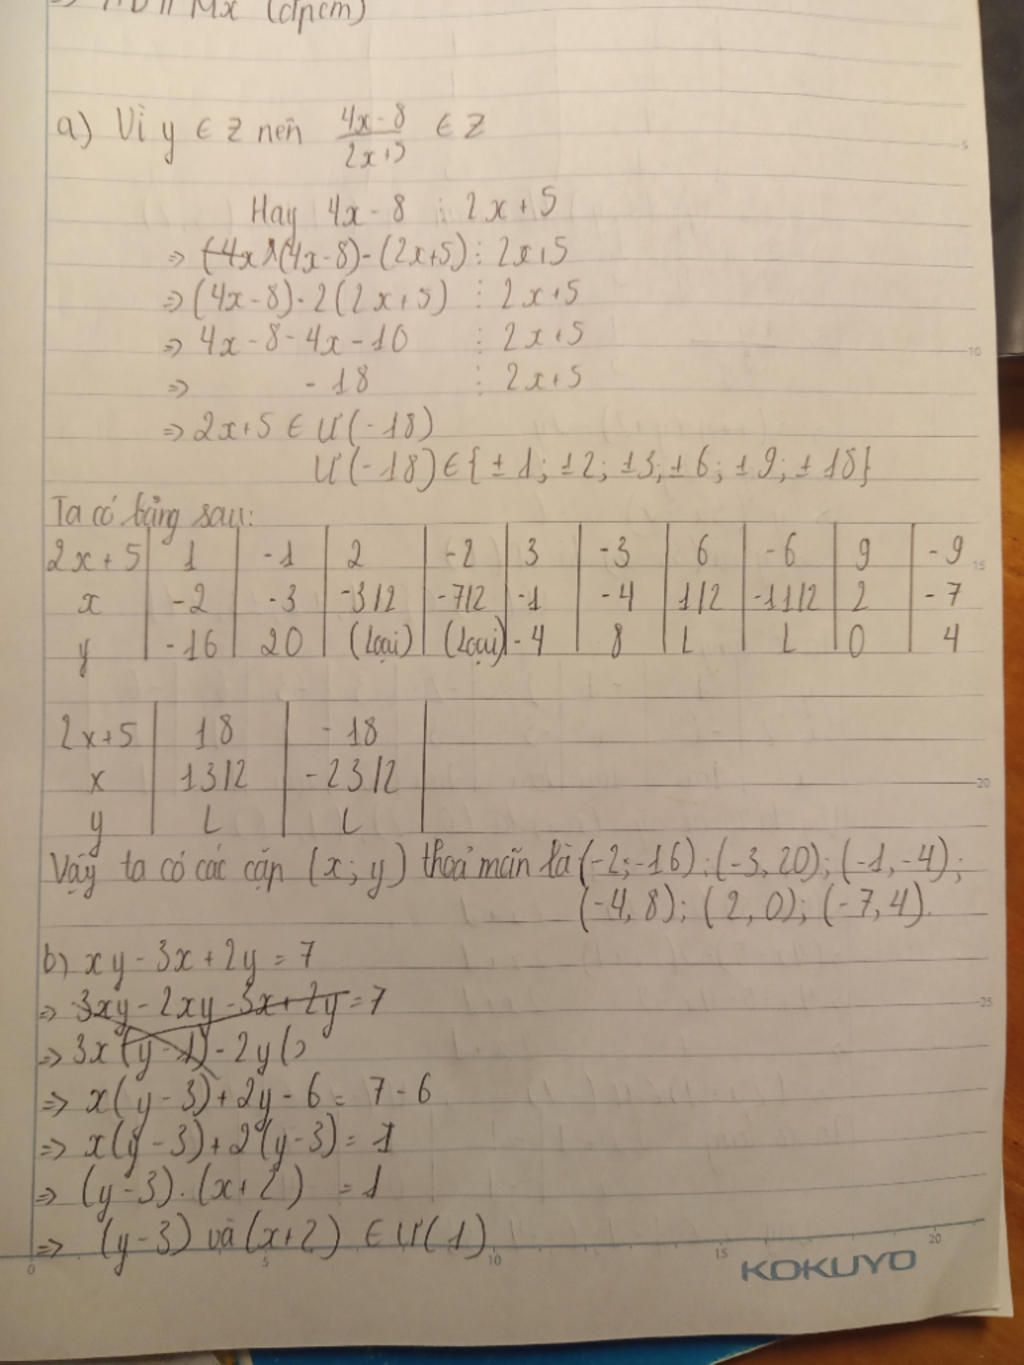 Mx (đpcm)
a) Vì y ∈ Z nên 4x-8/2x+5 ∈ Z
Hay 4x - 8 ⋮ 2x + 5
=> (4x-8)-(2x+5) ⋮ 2x+5
=> (4x-8)-2(2x+5) ⋮ 2x+5
=> 4x-8-4x-10 ⋮ 2x+5
=> -18 ⋮ 2x+5
=> 2x+5 ∈ Ư(-18)
Ư(-18) ∈ {±1; ±2; ±3; ±6; ±9; ±18}
Ta có bảng sau:
2x+5 1 -1 2 -2 3 -3 6 -6 9 -9
x -2 -3 -3/2 -7/2 -1 -4 1/2 -11/2 2 -7
y -16 20 (Loại) (Loại) -4 8 L L 0 4
2x+5 18 -18
x 13/2 -23/2
y L L
Vậy ta có các cặp (x; y) thoả mãn là (-2; -16); (-3, 20); (-1, -4);
(-4, 8); (2, 0); (-7, 4).
b) xy - 3x + 2y = 7
=> 3xy - 2xy - 3x + 2y = 7
=> 3x(y-1) - 2y(
=> x(y-3) + 2y - 6 = 7 - 6
=> x(y-3) + 2(y-3) = 1
=> (y-3).(x+2) = 1
=> (y-3) và (x+2) ∈ Ư(1)
0 5 10 15 20
KOKUYO
5
10
15
20
25